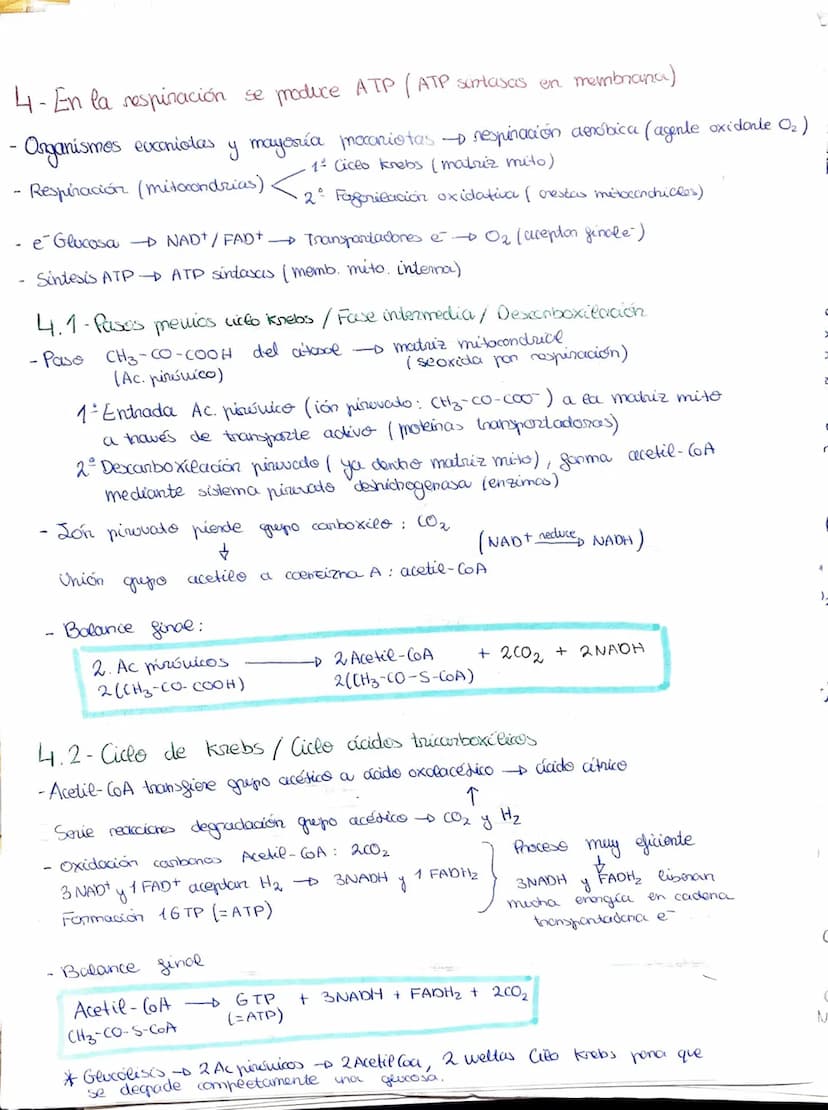 4- En la respiración se produce ATP (ATP sintasas en membrana)
- Organismos eucariotas y mayoría procariotas → respiración aeróbica (agente oxidante O₂)
- Respiración (mitocondrias) < 1º Ciclo Krebs (matriz mito)
2º Fosforilación oxidativa (crestas mitocondriales)
- e⁻ Glucosa → NAD⁺/FAD⁺ → Transportadores e⁻ → O₂ (aceptor final e⁻)
- Síntesis ATP → ATP sintasas (memb. mito. interna)
4.1- Pasos previos ciclo Krebs / Fase intermedia / Descarboxilación
- Paso CH₃-CO-COOH del citosol → matriz mitocondrial
(Ac. pirúvico) (se oxida por respiración)
1º Entrada Ac. pirúvico (ión piruvato: CH₃-CO-COO⁻) a la matriz mito
a través de transporte activo (proteínas transportadoras)
2º Descarboxilación piruvato (ya dentro matriz mito), forma acetil-CoA
mediante sistema piruvato deshidrogenasa (enzimas)
- Ión piruvato pierde grupo carboxilo: CO₂
↓ (NAD⁺ reduce→ NADH)
Unión grupo acetilo a coenzima A: acetil-CoA
- Balance final:
2. Ac pirúvicos → 2 Acetil-CoA + 2CO₂ + 2NADH
2(CH₃-CO-COOH) 2(CH₃-CO-S-CoA)
4.2- Ciclo de Krebs / Ciclo ácidos tricarboxílicos
- Acetil-CoA transfiere grupo acético a ácido oxalacético → ácido cítrico
↑
Serie reacciones degradación grupo acético → CO₂ y H₂
- Oxidación carbonos Acetil-CoA: 2CO₂
3 NAD⁺ y 1 FAD⁺ aceptan H₂ → 3NADH y 1 FADH₂
Formación 1 GTP (=ATP)
Proceso muy eficiente
↓
3NADH y FADH₂ liberan
mucha energía en cadena
transportadora e⁻
- Balance final
Acetil-CoA → GTP + 3NADH + FADH₂ + 2CO₂
CH₃-CO-S-CoA (=ATP)
* Glucólisis → 2 Ac pirúvicos → 2 Acetil Coa, 2 vueltas Ciclo Krebs para que
se degrade completamente una glucosa.